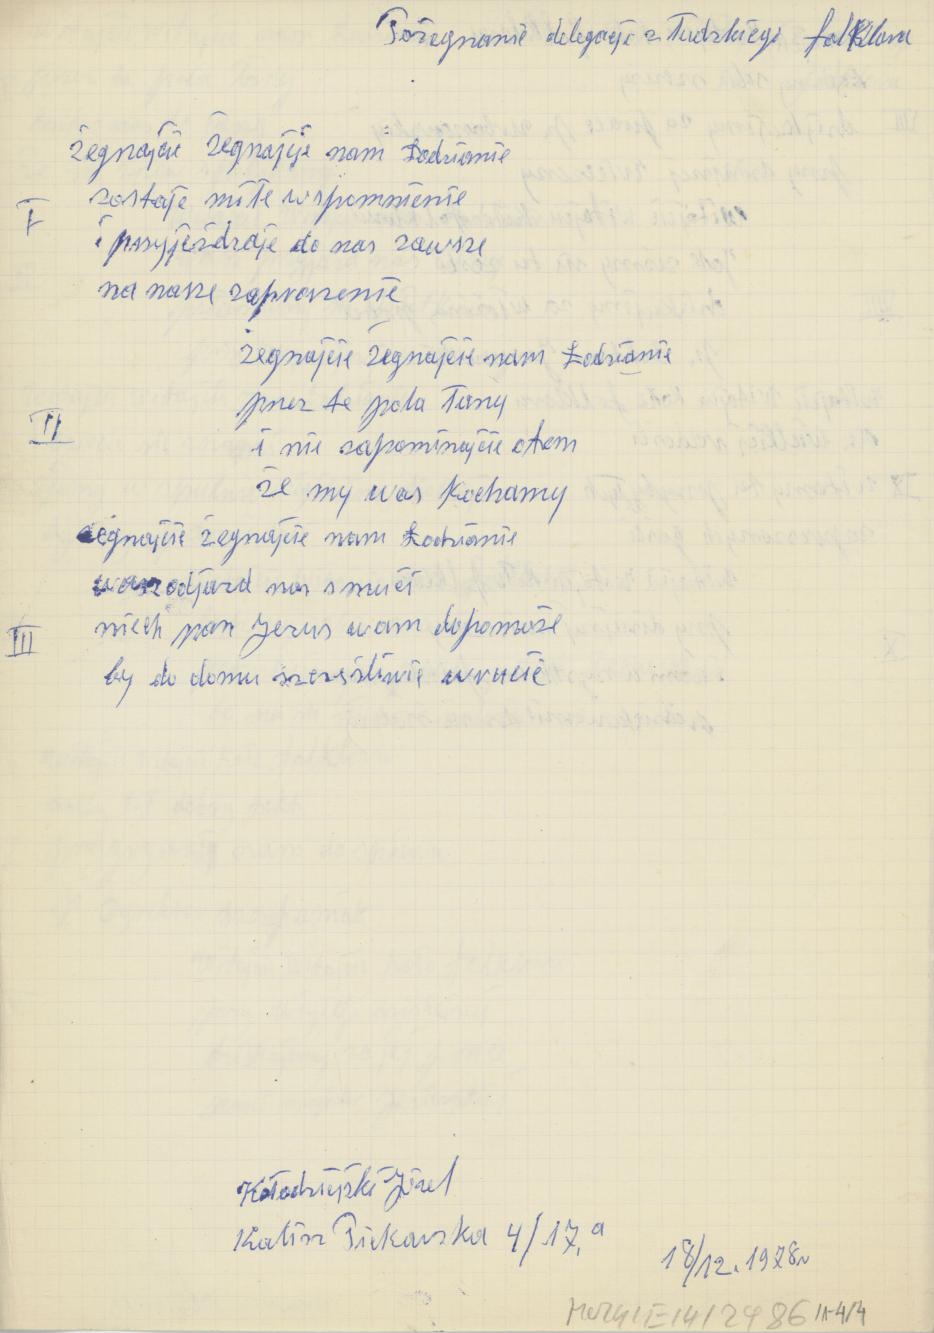 Pożegnanie delegacje z łudzkiego folkloru
żegnajcie żegnajcje nam Łodzianie
I
zostaje miłe wspomnienie
i przyjeżdzaje do nas zawsze
na nasze zaproszenie
żegnajcie żegnajcie nam Łodzianie
przez te pola łany
II
i nie zapominajcie otem
że my was kochamy
żegnajcie żegnajcie nam Łodzianie
wasz odjazd nas smuci
III
niech pan Jezus wam dopomoże
by do domu szczęśliwie wrucić
Kołodziejski Józef
Kalisz Piekarska 4/17,a
18/12.1978r
II-4/4